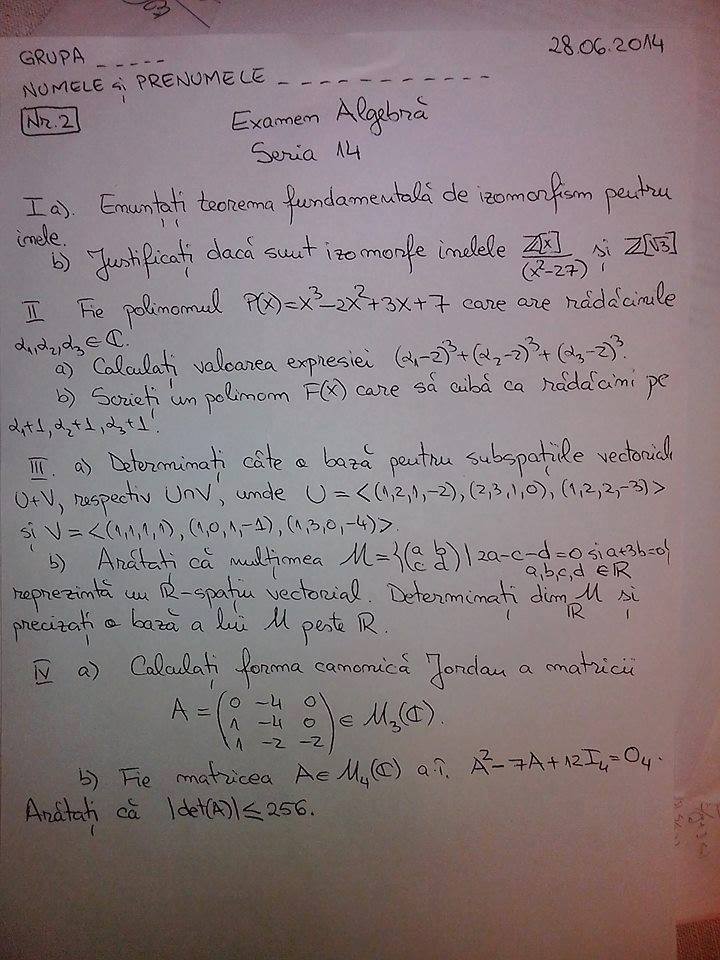 28.06.2014
GRUPA _ _ _ _ _
NUMELE și PRENUMELE _ _ _ _ _ _ _ _ _ _ _
Nr. 2
Examen Algebră
Seria 14
I a). Enunțați teorema fundamentală de izomorfism pentru
inele.
b) Justificați dacă sunt izomorfe inelele Z[X]/(X²-27) și Z[√3]
II Fie polinomul P(X)=X³-2X²+3X+7 care are rădăcinile
α₁,α₂,α₃ ∈ ℂ.
a) Calculați valoarea expresiei (α₁-2)³+(α₂-2)³+(α₃-2)³.
b) Scrieți un polinom F(X) care să aibă ca rădăcini pe
α₁+1, α₂+1, α₃+1.
III. a) Determinați câte o bază pentru subspațiile vectoriale
U+V, respectiv U∩V, unde U = <(1,2,1,-2), (2,3,1,0), (1,2,2,-3)>
și V = <(1,1,1,1), (1,0,1,-1), (1,3,0,-4)>.
b) Arătați că mulțimea M = {(a b; c d) | 2a-c-d=0 și a+3b=0}
a,b,c,d ∈ ℝ
reprezintă un ℝ-spațiu vectorial. Determinați dim_ℝ M și
precizați o bază a lui M peste ℝ.
IV a) Calculați forma canonică Jordan a matricii
A = (0 -4 0; 1 -4 0; 1 -2 -2) ∈ M₃(ℂ).
b) Fie matricea A ∈ M₄(ℂ) a.î. A²-7A+12I₄=O₄.
Arătați că |det(A)| ≤ 256.